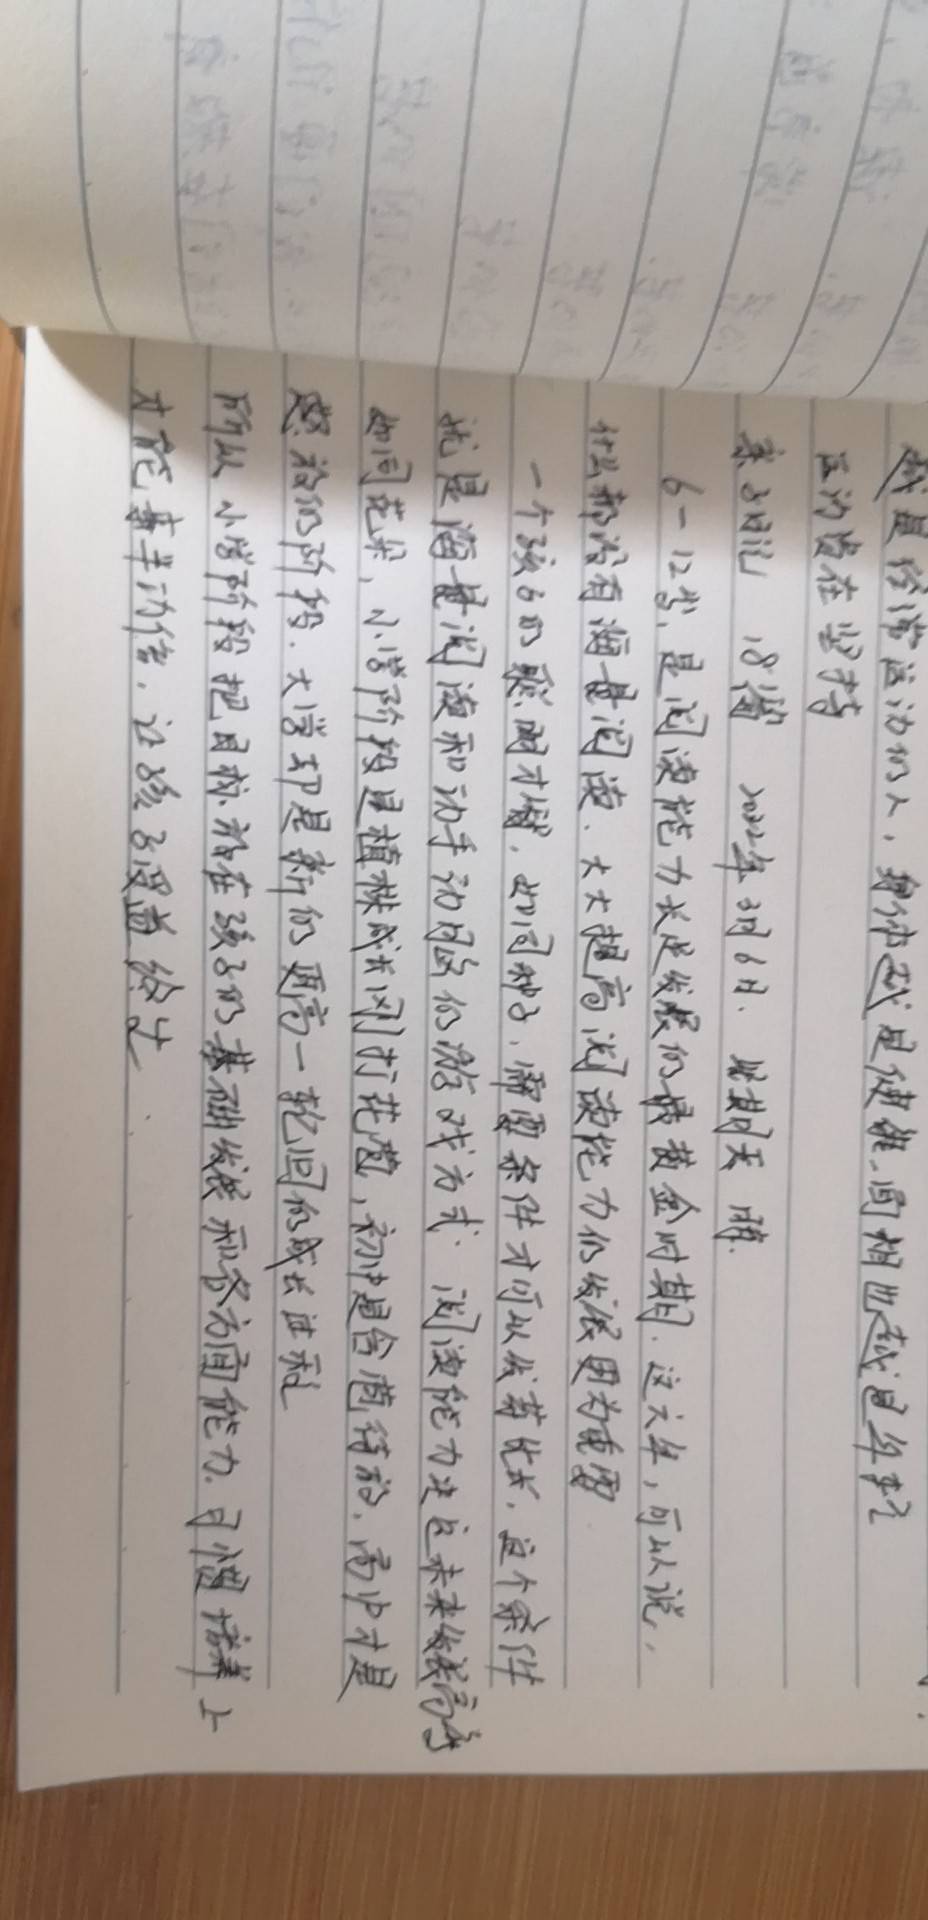 越是经常运动的人，身体越是使维，面相也越是年轻
运动贵在坚持
亲子日记 18篇 2022年3月6日. 星期天 晴.
6－12岁，是阅读能力长足发展的最黄金时期．这六年，可以说，
什么都没有海量阅读．大大提高阅读能力的发展更为重要
一个孩子的聪明才智．如同种子，需要条件才可以发芽化成．这个条件
就是海量阅读和动手动脑的游戏方式．阅读能力决定未来发展高考
如同花朵，小学阶段是植株成长刚打花苞，初中是含苞待放．高中才是
怒放的阶段．大学却是新的更高一轮回的成长进程
所以小学阶段把目标放在孩子的基础发展和各方面能力．习惯培养上
才能事半功倍．让孩子受益终生